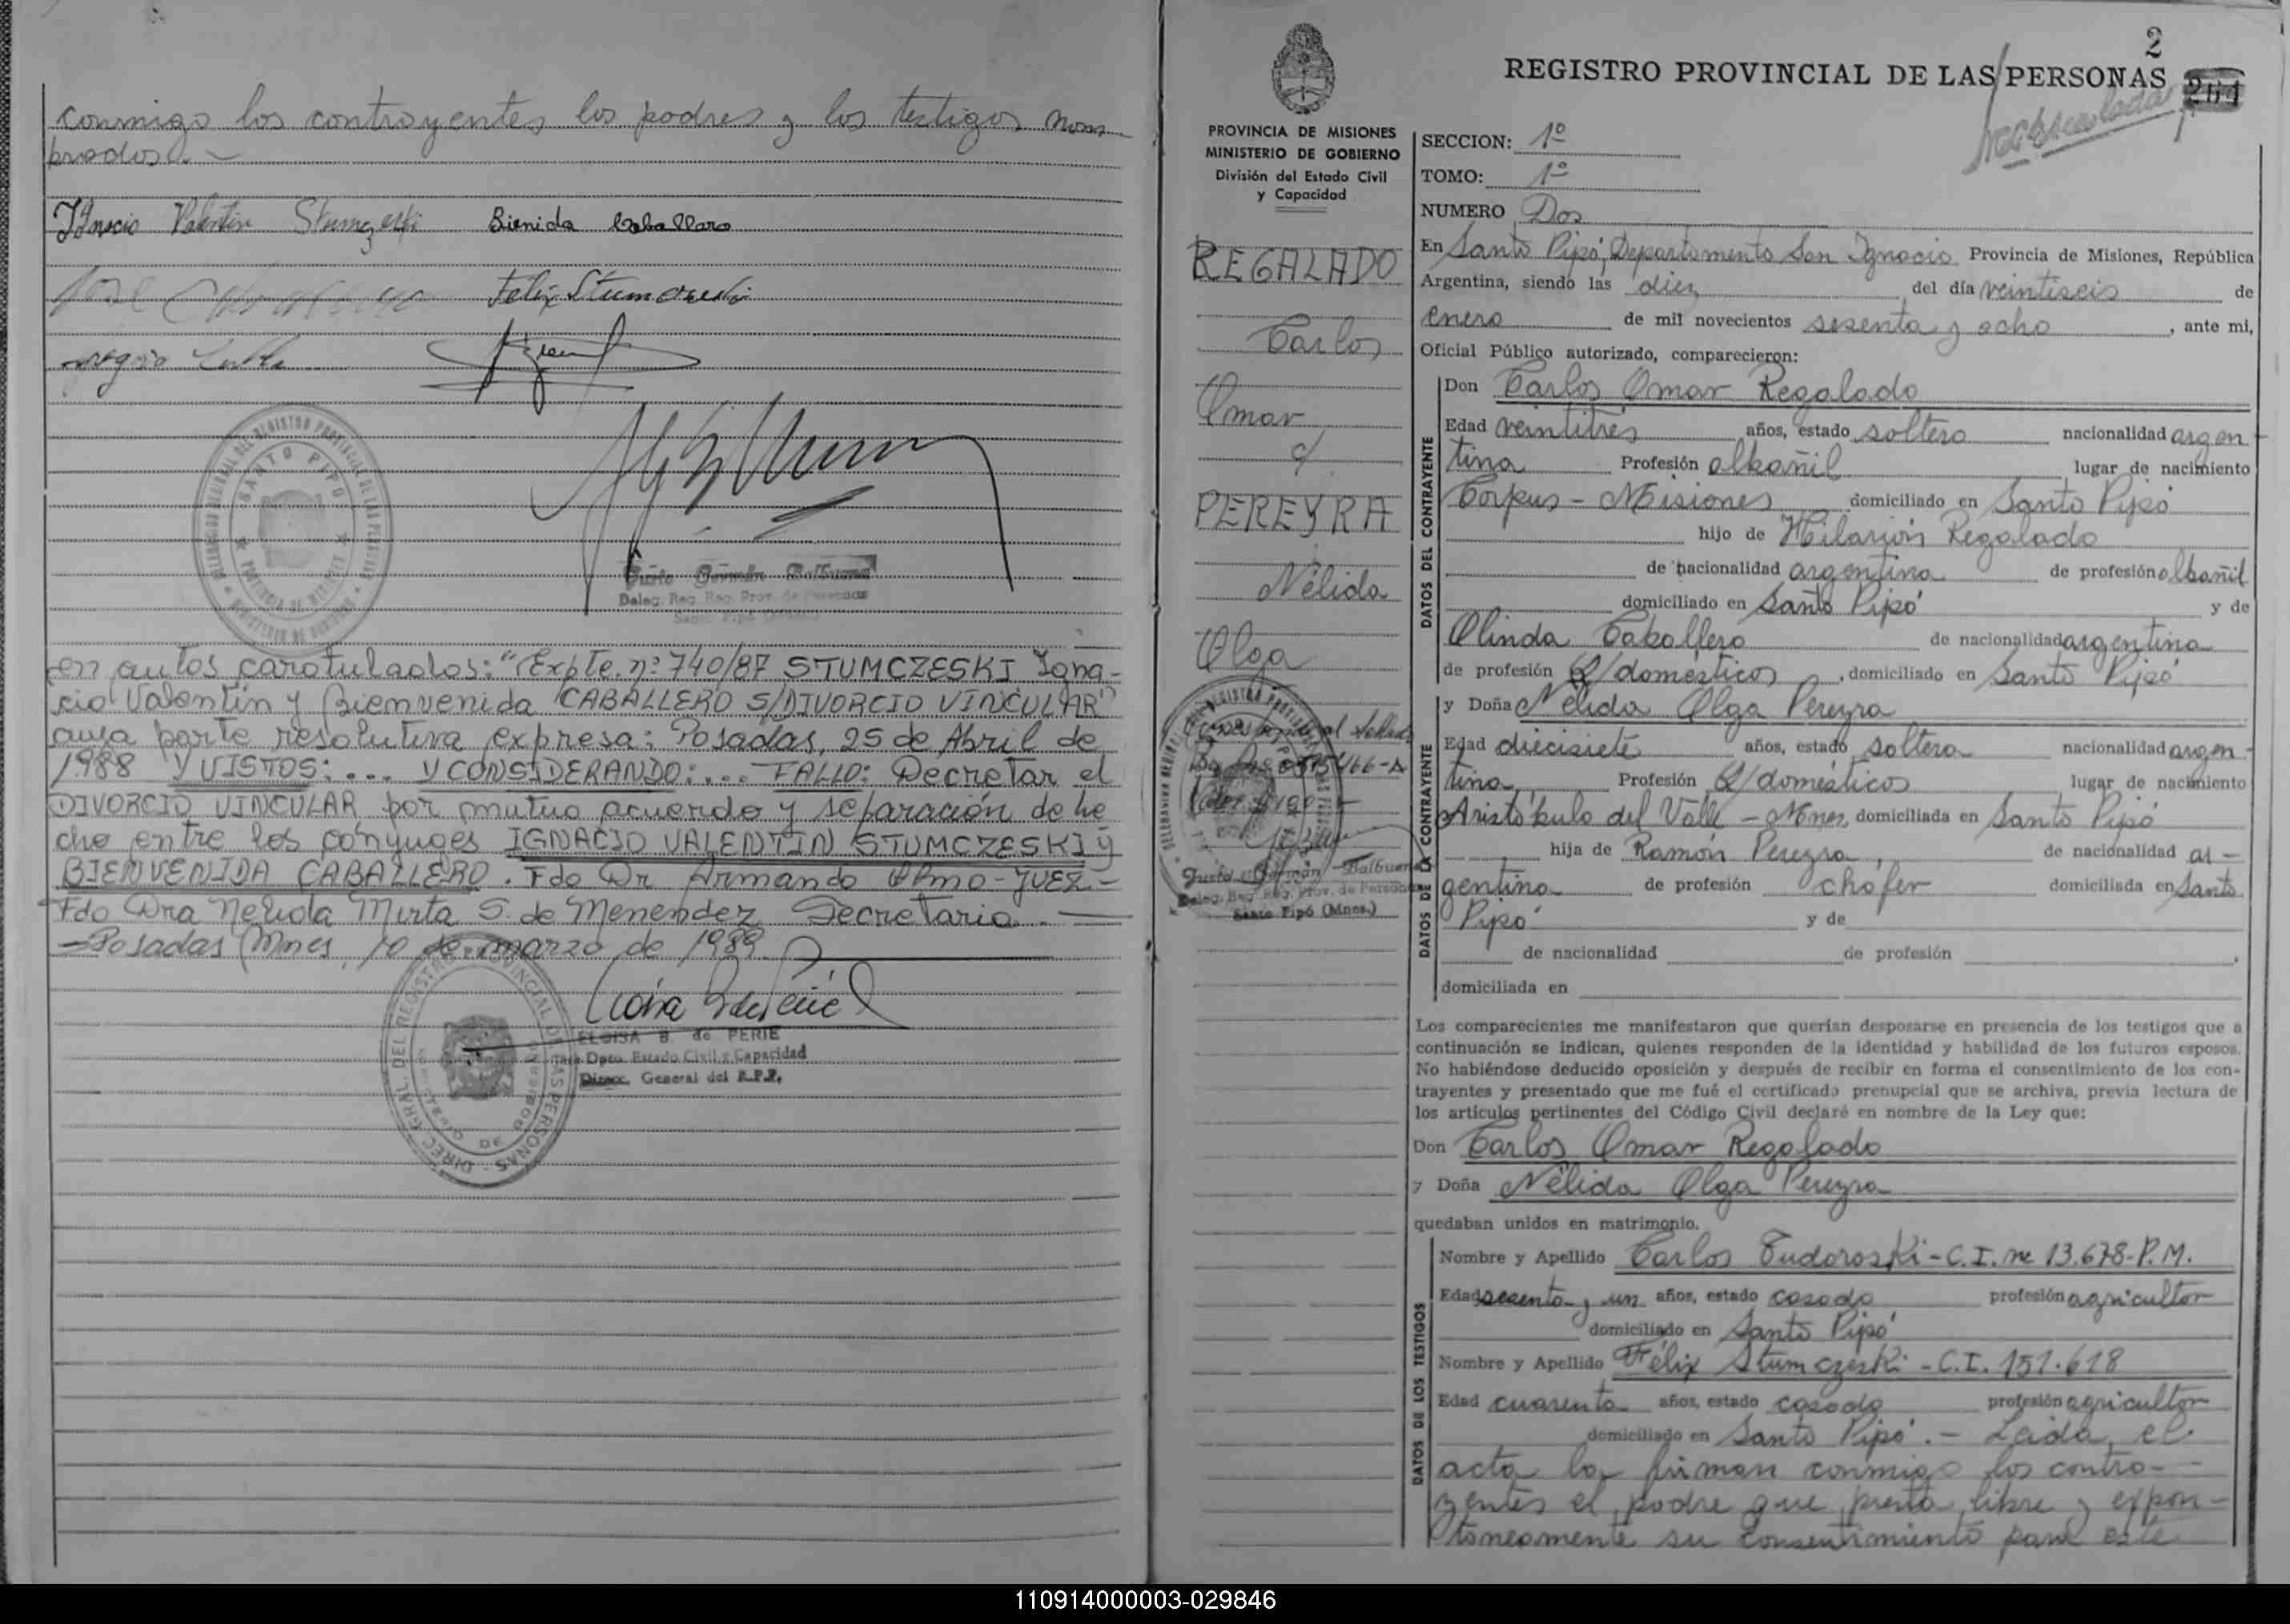 conmigo los contrayentes los padres y los testigos nom
brados.-
Ignacio Valentin Stumczeski Bienida Caballero
Felix Stumczeski
Justo Germán Balbuena
Deleg. Reg. Reg. Prov. de Personas
Santo Pipó (Mnes.)
en autos caratulados: "Expte. nº 740/87 STUMCZESKI Igna-
cio Valentín y Bienvenida CABALLERO S/DIVORCIO VINCULAR"
cuya parte resolutiva expresa: Posadas, 25 de Abril de
1988 Y VISTOS:... Y CONSIDERANDO:... FALLO: Decretar el
DIVORCIO VINCULAR por mutuo acuerdo y separación de he
cho entre los cónyuges IGNACIO VALENTIN STUMCZESKI y
BIENVENIDA CABALLERO. Fdo Dr Armando Olmo-JUEZ-
Fdo Dra Nelida Mirta S. de Menendez Secretaria.
-Posadas (Mnes, 10 de marzo de 1989.
ELOISA B. de PERIE
Dpto. Estado Civil y Capacidad
Direcc. General del R.P.P.
2
REGISTRO PROVINCIAL DE LAS PERSONAS
PROVINCIA DE MISIONES
MINISTERIO DE GOBIERNO
División del Estado Civil
y Capacidad
REGALADO
Carlos
Omar
c/
PEREYRA
Nélida
Olga
Corresponde al Sellado
Justo Germán Balbuena
Deleg. Reg. Reg. Prov. de Personas
Santo Pipó (Mnes.)
SECCION: 1º
TOMO: 1º
NUMERO Dos
En Santo Pipó, Departamento San Ignacio Provincia de Misiones, República
Argentina, siendo las diez del día veintiseis de
enero de mil novecientos sesenta y ocho, ante mi,
Oficial Público autorizado, comparecieron:
DATOS DEL CONTRAYENTE
Don Carlos Omar Regalado
Edad veintitrés años, estado soltero nacionalidad argen-
tina Profesión albañil lugar de nacimiento
Corpus - Misiones domiciliado en Santo Pipó
hijo de Hilarión Regalado
de nacionalidad argentina de profesión albañil
domiciliado en Santo Pipó y de
Olinda Caballero de nacionalidad argentina
de profesión Q/domésticos, domiciliado en Santo Pipó
DATOS DE LA CONTRAYENTE
y Doña Nélida Olga Pereyra
Edad diecisiete años, estado soltera nacionalidad argen-
tina, Profesión Q/domésticos lugar de nacimiento
Aristóbulo del Valle - Mnes, domiciliada en Santo Pipó
hija de Ramón Pereyra, de nacionalidad ar-
gentina de profesión chófer domiciliada en Santo
Pipó y de
de nacionalidad de profesión
domiciliada en
Los comparecientes me manifestaron que querían desposarse en presencia de los testigos que a
continuación se indican, quienes responden de la identidad y habilidad de los futuros esposos.
No habiéndose deducido oposición y después de recibir en forma el consentimiento de los con-
trayentes y presentado que me fué el certificado prenupcial que se archiva, previa lectura de
los artículos pertinentes del Código Civil declaré en nombre de la Ley que:
Don Carlos Omar Regalado
y Doña Nélida Olga Pereyra
quedaban unidos en matrimonio.
DATOS DE LOS TESTIGOS
Nombre y Apellido Carlos Tudoroski - C.I. nº 13.678-P.M.
Edad sesenta y un años, estado casado profesión agricultor
domiciliado en Santo Pipó
Nombre y Apellido Félix Stumczeski - C.I. 151.618
Edad cuarenta años, estado casado profesión agricultor
domiciliado en Santo Pipó.- Leida, el
acta la firman conmigo los contra-
yentes el padre que presta libre y expon-
táneamente su consentimiento para este
110914000003-029846